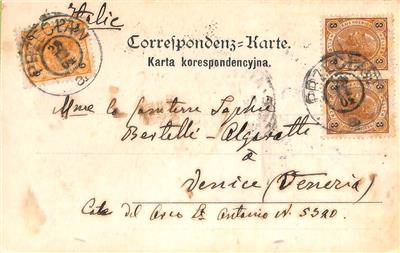 Italie
Correspondenz-Karte.
Karta korespondencyjna.
Mme la Comtesse Sophie
Bertelli-Algarotti
à
Venice (Venezia)
Calle del Arco St Antonino N. 5320
3 3
3 3